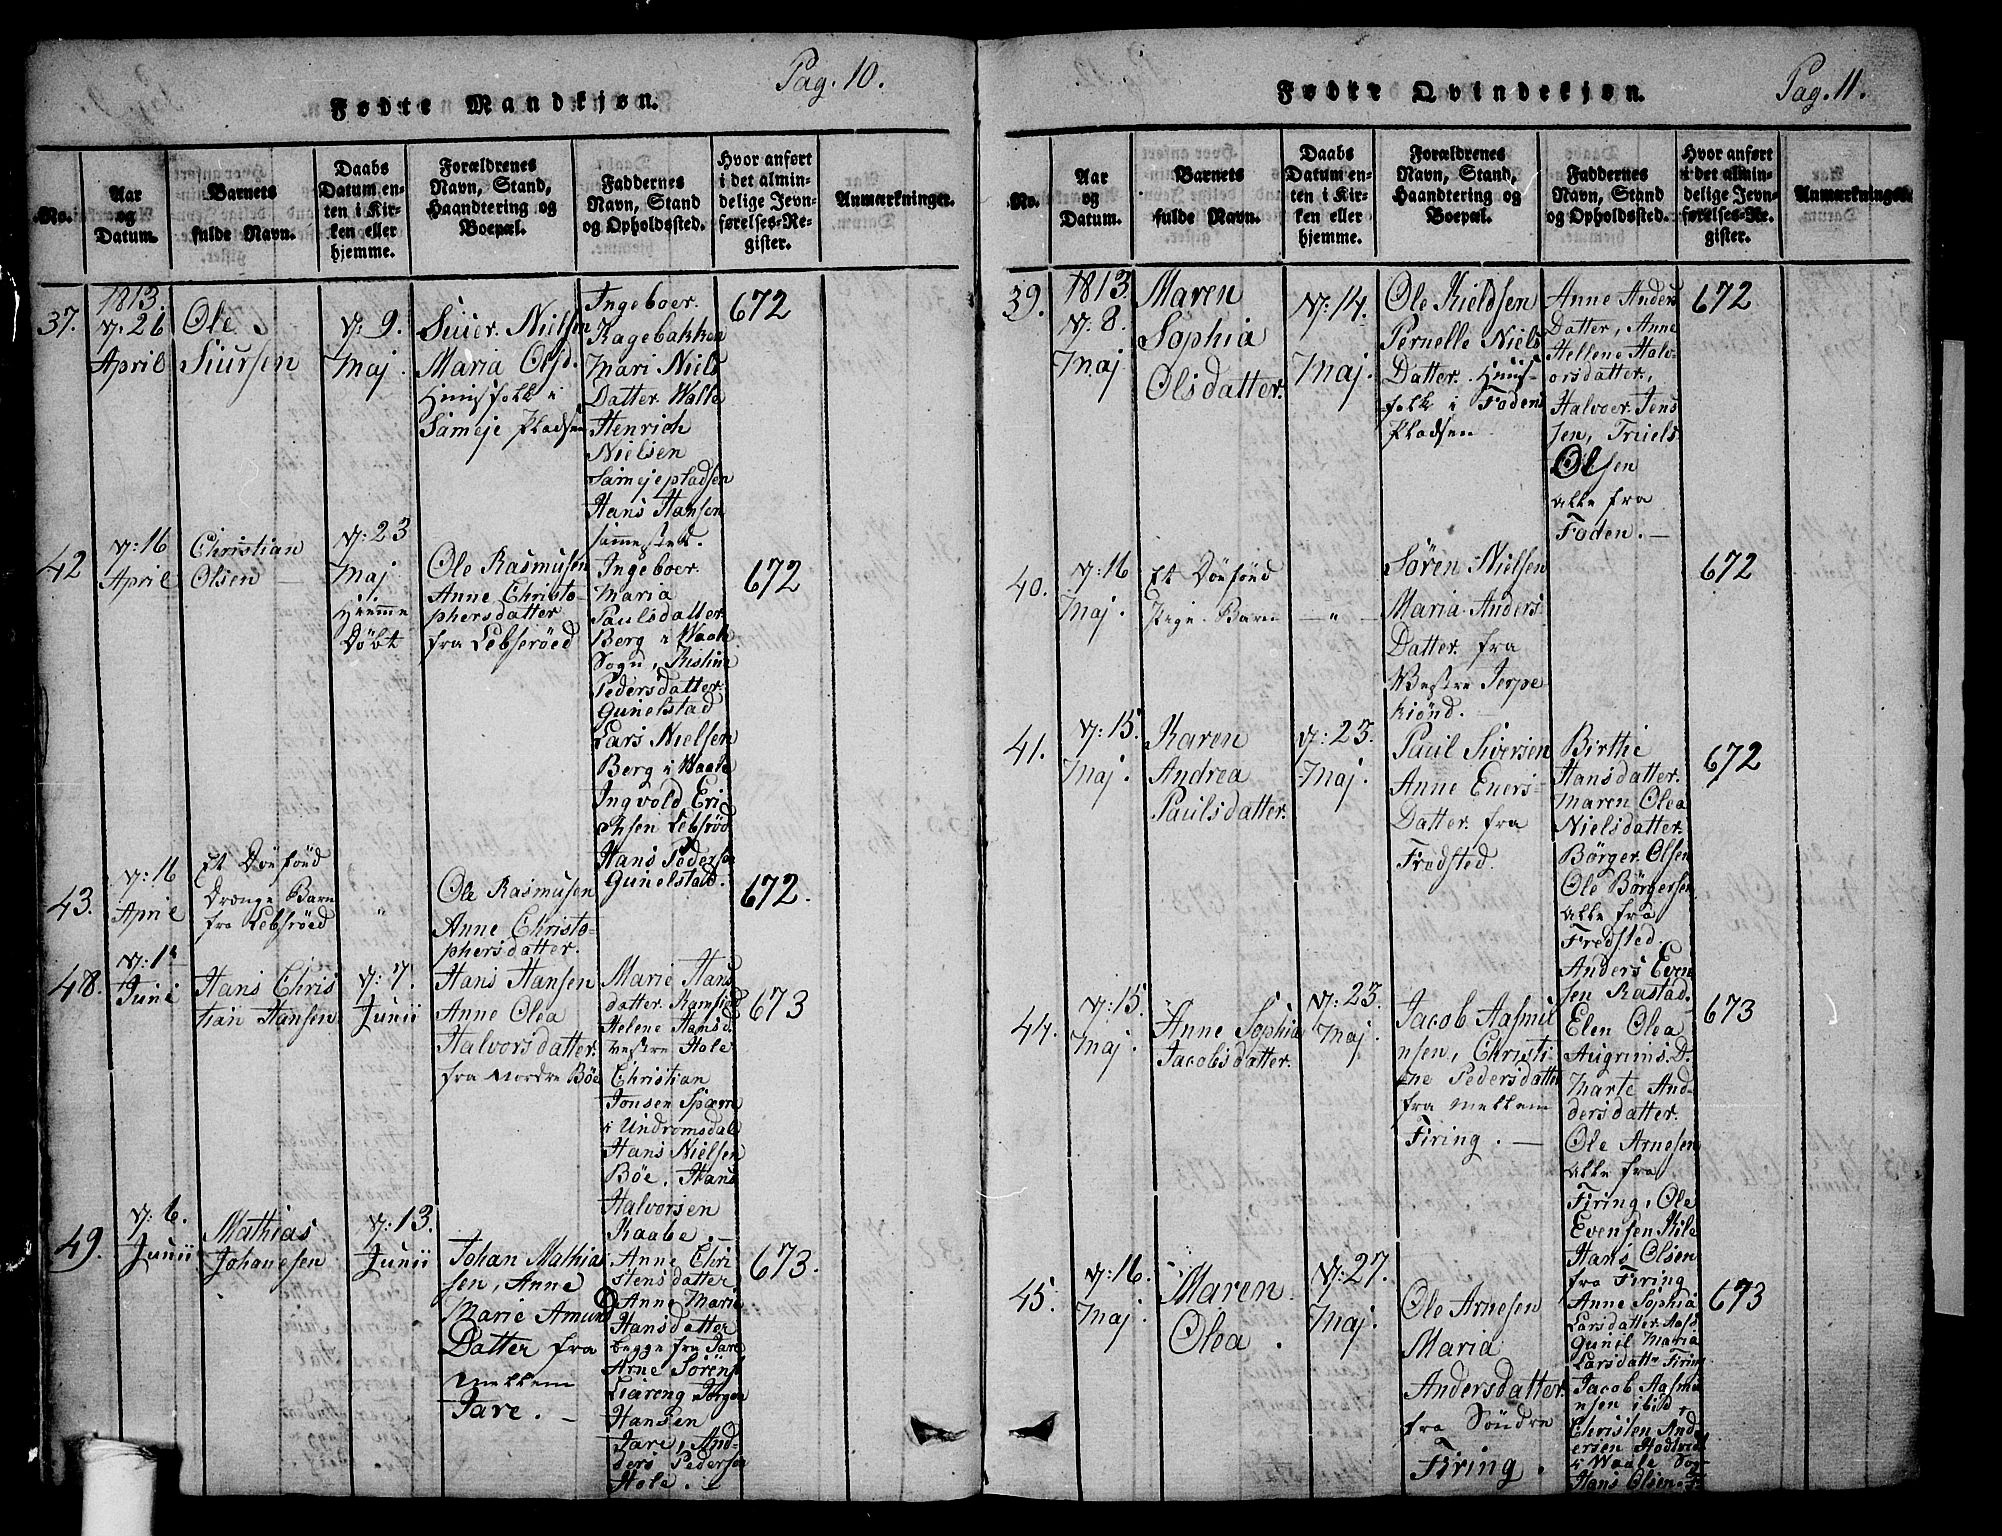 Pag. 10.
Fødte Mandkjøn.
No.
Aar
og
Datum.
Barnets
fulde Navn.
Daabs
Datum en-
ten i Kir-
ken eller
hjemme.
Forældrenes
Navn, Stand,
Haandtering og
Boepæl.
Faddernes
Navn, Stand
og Opholdssted.
Hvor anført
i det almin-
delige Jevn-
førelses-Re-
gister.
Anmærkninger.
37.
1813.
d: 26
April
Ole
Siursen
d: 9.
Maj
Siuer Nielsen
Maria Olsd.
Huusfolk i
Sameje Pladsen
Ingeboer
Kagebakken
Mari Niels
Datter Walle
Henrich
Nielsen
Samejepladsen
Hans Hansen
sammested.
672
42
d: 16
April
Christian
Olsen
d: 23
Maj
Hiemme
Döbt
Ole Rasmusen
Anne Christo-
phersdatter
fra Lebseröed
Ingeboer
Maria
Paulsdatter
Berg i Waale
Sogn, Kistine
Pedersdatter
Gunelstad
Lars Nielsen
Berg i Waale
Ingvold Eri
chsen Lebsröd
Hans Peders
Gunelstad.
672
43.
d: 16
April
Et Döufönd
Drænge Barn
fra Lebsröed
"
Ole Rasmusen
Anne Christo-
phersdatter.
672.
48.
d: 1
Juni
Hans Chris
tian Hansen
d: 7.
Junii
Hans Hansen
Anne Olea
Halvorsdatter.
fra Nordre Böe
Marie Hans
datter Ramsied
Helene Hansd.
Vestre Hole
Christian
Jonsen Sparre
i Undromsdal
Hans Nielsen
Böe, Hans
Halvorsen
Raabe.
673
49.
d: 6.
Junii
Mathias
Johanesen
d: 13.
Junii
Johan Mathia
sen, Anne
Marie Amund
Datter fra
Mellem
Jare.
Anne Chri
stensdatter
Anne Marie
Hansdatter
begge fra Jare
Arne Sörens
Liæreng Jörgen
Hansen
Jare, And-
ders Pedersen
Hole.
673.
Pag. 11.
Fødte Qvindekjøn.
No.
Aar
og
Datum.
Barnets
fulde Navn.
Daabs
Datum en-
ten i Kir-
ken eller
hjemme.
Forældrenes
Navn, Stand,
Haandtering og
Boepæl.
Faddernes
Navn, Stand
og Opholdssted.
Hvor anført
i det almin-
delige Jevn-
førelses-Re-
gister.
Anmærkninger.
39.
1813
d. 8.
Maj
Maren
Sophia
Olsdatter.
d: 14.
Maj.
Ole Kieldsen
Pernelle Niels
Datter. Huus-
folk i Foden
Pladsen
Anne Anders
Datter, Anne
Hellene Halv-
orsdatter,
Halvoer Jens
sen, Truels
Olsen
alle fra
Foden.
672
40.
d: 16
Maj.
Et Döufönd
Pige Barn
"
Sören Nielsen
Maria Anders
Datter fra
Westre Jerpe
kiönd.
672
41.
d: 15.
Maj.
Karen
Andrea
Paulsdatter.
d: 23.
Maj.
Paul Siversen
Anne Evers-
Datter fra
Fredsted
Birthe
Hansdatter.
Maren Olea
Nielsdatter.
Börger Olsen
Ole Börgersen
alle fra
Fredsted.
672
44.
d: 15.
Maj.
Anne Sophia
Jacobsdatter.
d: 23.
Maj.
Jacob Aasmu
nsen, Christi-
ne Pedersdatter
fra Mellem
Firing.
Anders Even
sen Rastad.
Elen Olea
Augrims. D.
Marte And-
dersdatter.
Ole Arnesen
alle fra
Firing, Ole
Evensen Kile
Hans Olsen
fra Firing
673
45.
d: 16.
Maj.
Maren
Olea.
d: 27.
Maj.
Ole Arnesen
Maria
Andersdatter
fra Söndre
Firing.
Anne Sophia
Larsdatter Aas
Gunil Maria
Larsdatr Firing
Jacob Aasmu
nsen ibid,
Christen And
ersen Hodtvedt
i Waale Sog
Hans Olsen
673